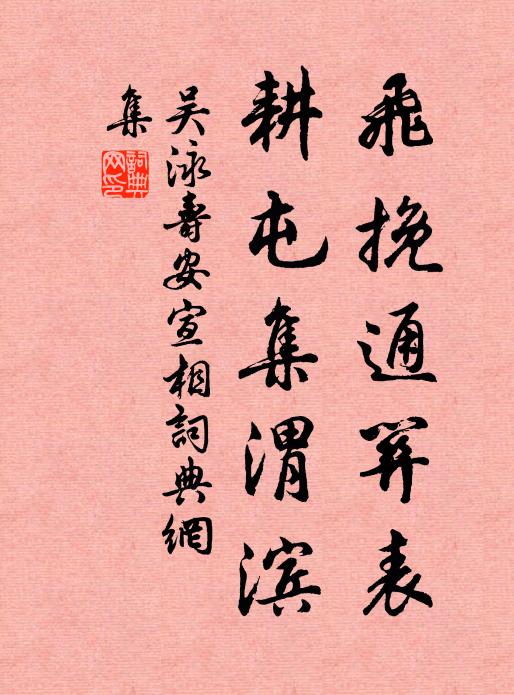 飛挽通箅表
耕屯集渭濱
吴泳壽安宣相詞典網
集
詞典網印